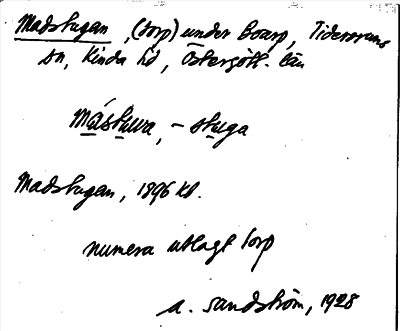 Madstugan, (torp) under Boarp, Tidersrums
sn, Kinda hd, Östergötl. län
mástuwa, – stuga
Madstugan, 1896 kl.
numera utlagt torp
A. Sandström, 1928